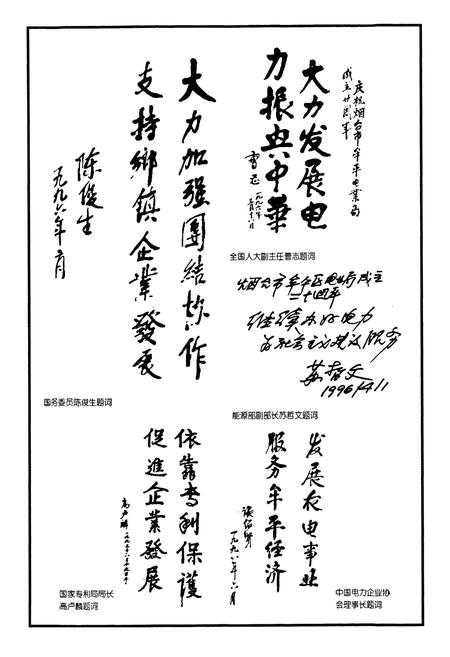 庆祝烟台市牟平电业局
成立廿周年
大力发展电
力振兴中華
曹志 一九九六年
全国人大副主任曹志题词
大力加强團結協作
支持鄉镇企業發展
陈俊生
一九九六年六月
国务委员陈俊生题词
烟台市牟平区电业局成立
二十周年
继续办好电力
为社会主义建设服务
苏哲文
1996/4/11
能源部副部长苏哲文题词
依靠专利保護
促進企業發展
高卢麟
国家专利局局长
高卢麟题词
发展农电事业
服务牟平经济
張绍贤
一九九六年六月
中国电力企业协
会理事长题词